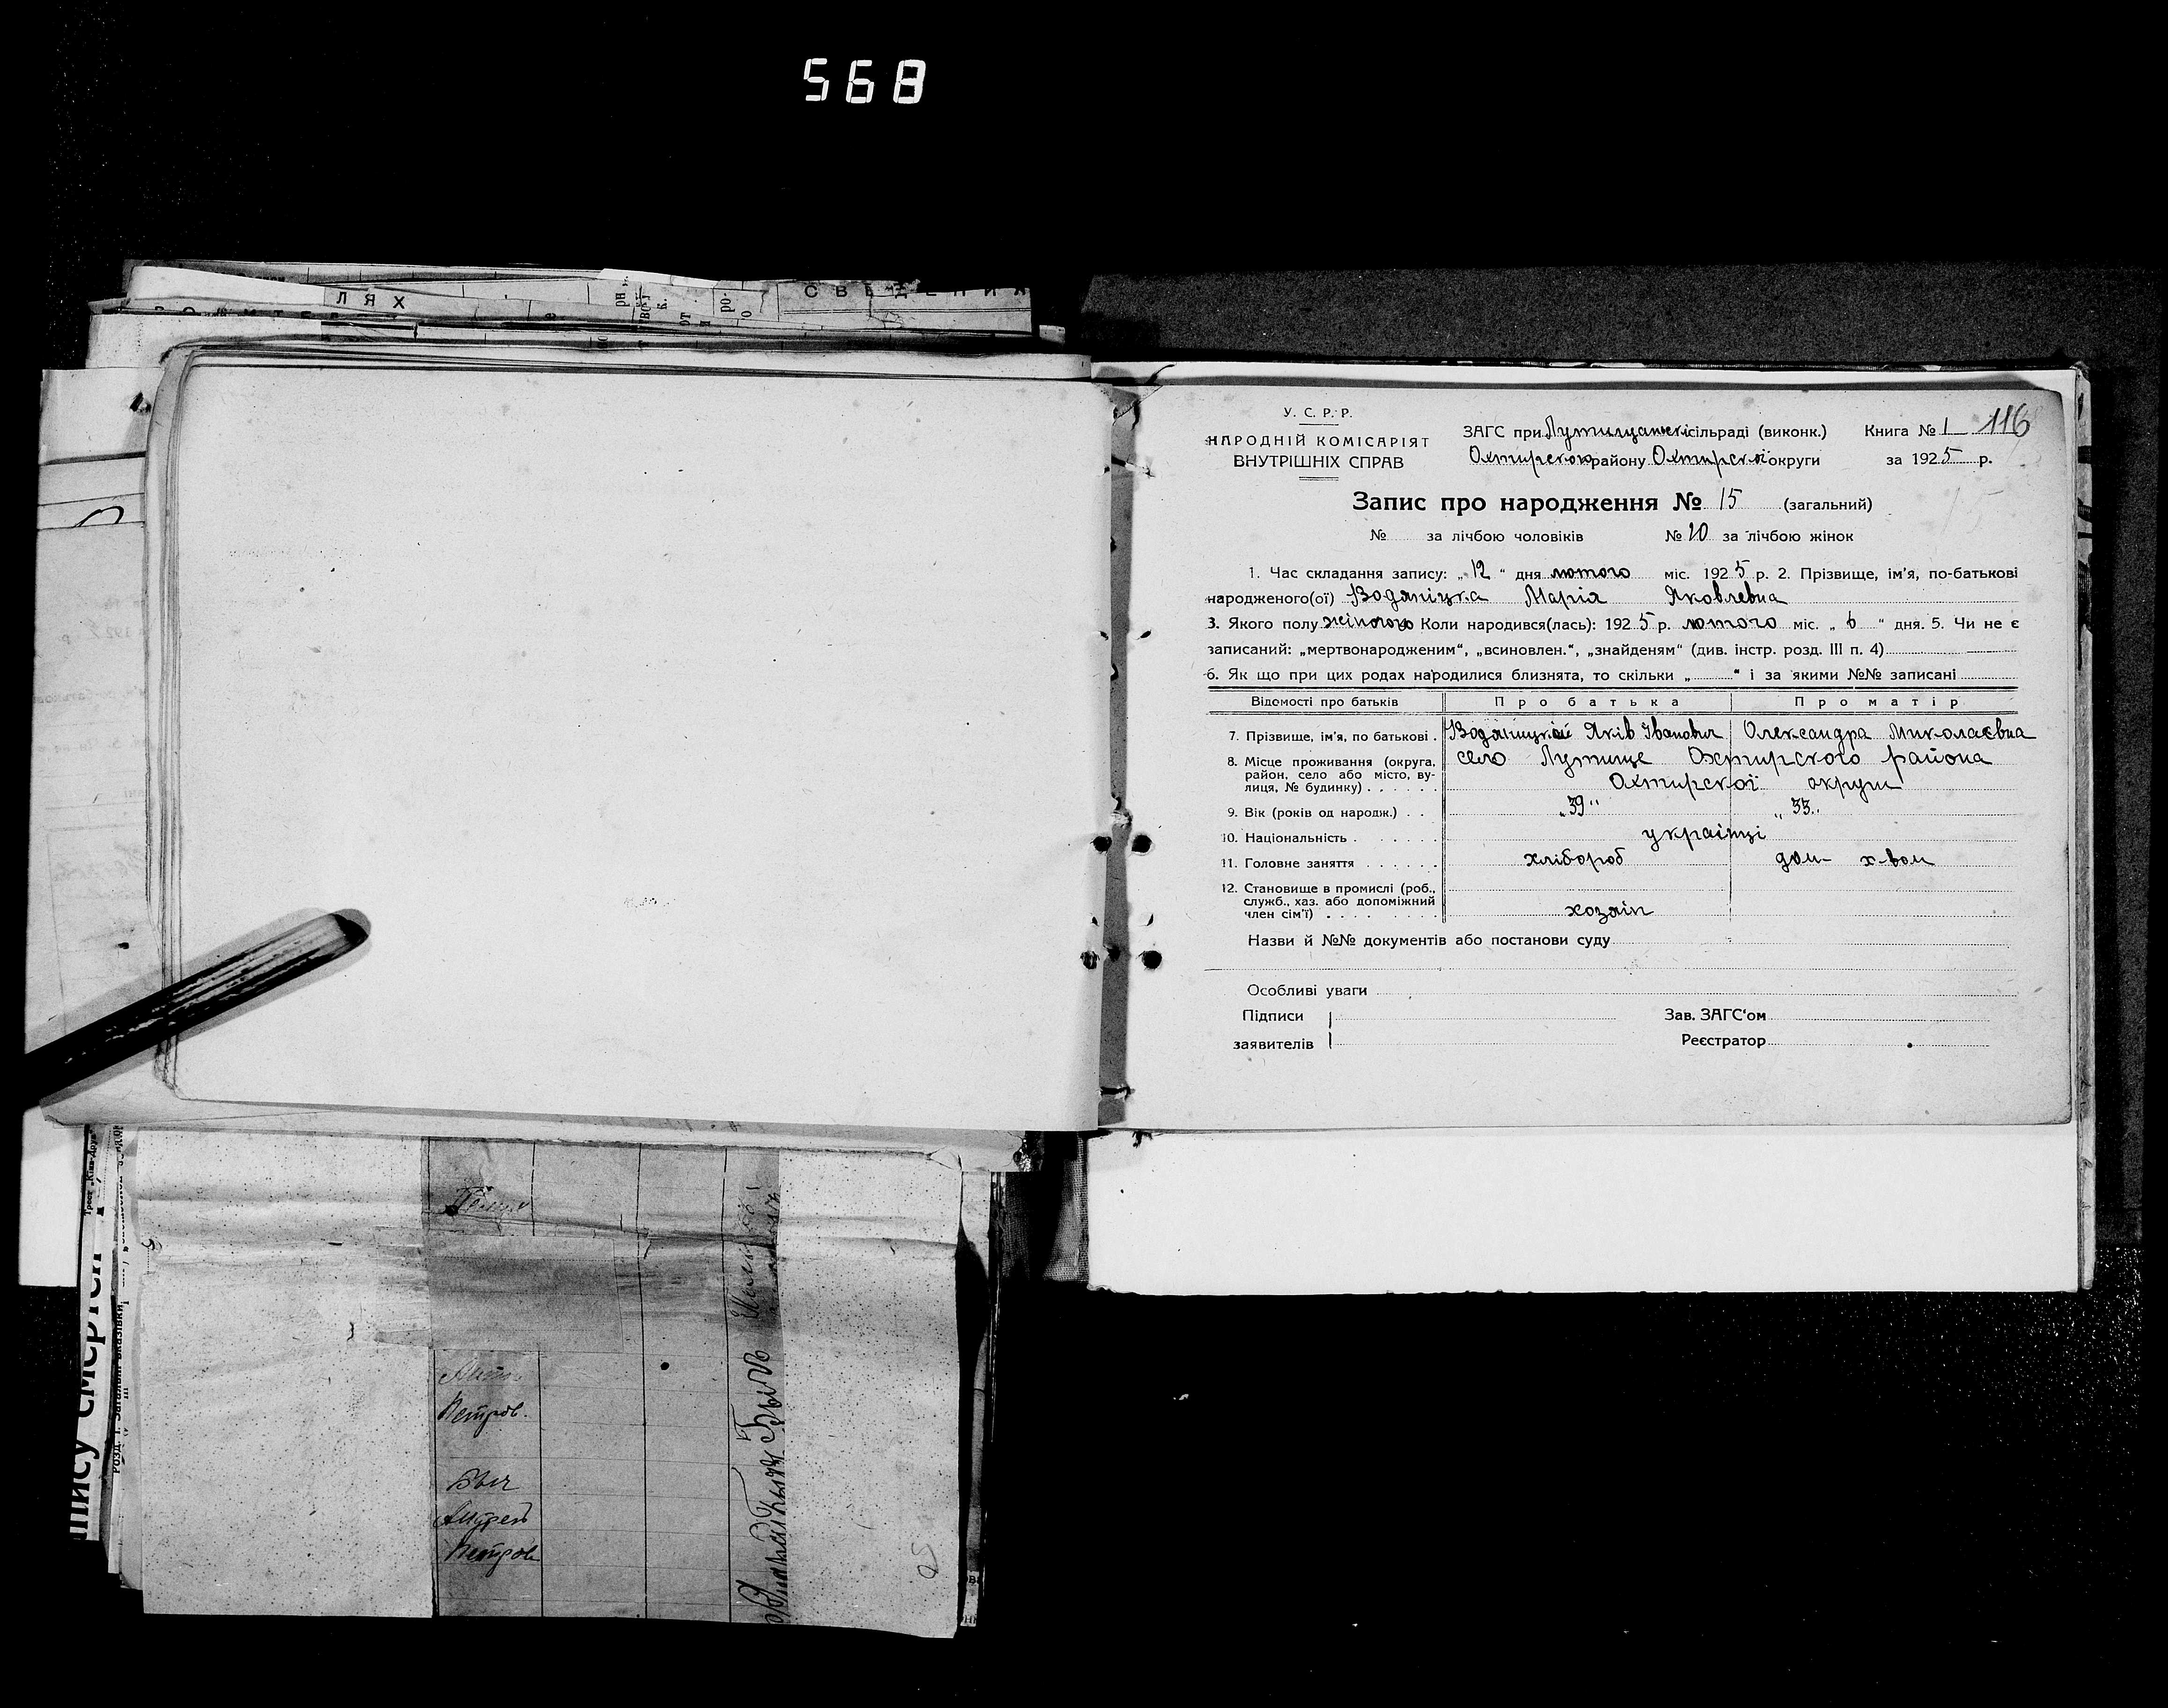 568
Л Я Х
С В Ѣ Д Е Н И Я
У. С. Р. Р.
НАРОДНІЙ КОМІСАРІЯТ
ВНУТРІШНІХ СПРАВ
ЗАГС при Лутищанськ сільраді (виконк.) Книга № 1 116
Охтирского району Охтирскої округи за 1925 р.
Запис про народження № 15 (загальний)
№ за лічбою чоловіків № 10 за лічбою жінок
1. Час складання запису: „12“ дня лютого міс. 1925 р. 2. Прізвище, ім'я, по-батькові
народженого(ої) Водяніцка Марія Яковлевна
3. Якого полу жіного Коли народився(лась): 1925 р. лютого міс. „6“ дня. 5. Чи не є
записаний: „мертвонародженим“, „всиновлен.“, „знайденям“ (див. інстр. розд. III п. 4)
6. Як що при цих родах народилися близнята, то скільки „ “ і за якими №№ записані
Відомості про батьків Про батька Про матір
7. Прізвище, ім'я, по батькові . Водяницкий Яків Іванович Олександра Миколаєвна
8. Місце проживання (округа, село Лутище Охтирского района
район, село або місто, ву-
лиця, № будинку) . . . . . . Охтирскої округи
9. Вік (років од народж.) . . „39“ „33“
10. Національність . . . . . . українці
11. Головне заняття . . . . . . хлібороб дом- х-вом
12. Становище в промислі (роб.,
служб., хаз. або допоміжний
член сім'ї) . . . . . . . . хозяін
Назви й №№ документів або постанови суду
Особливі уваги
Підписи Зав. ЗАГС'ом
заявителів Реєстратор
Петров.
Быч
Андрей
Петров
пису смертей